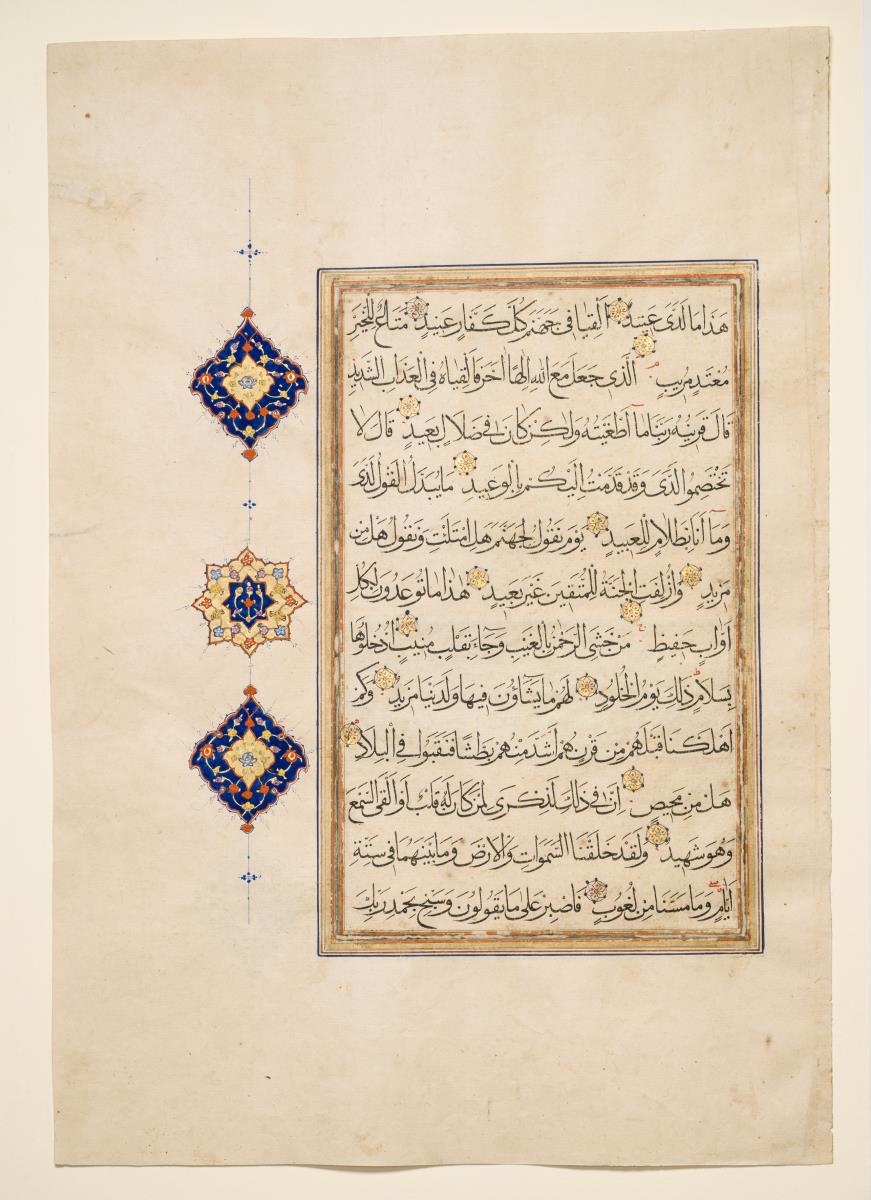 هَذَا مَا لَدَىَّ عَتِيدٌ اَلْقِيَا فِى جَهَنَّمَ كُلَّ كَفَّارٍ عَنِيدٍ مَنَّاعٍ لِلْخَيْرِ
مُعْتَدٍ مُرِيبٍ اَلَّذِى جَعَلَ مَعَ اللهِ اِلٰهًا اٰخَرَ فَاَلْقِيَاهُ فِى الْعَذَابِ الشَّدِيدِ
قَالَ قَرِينُهُ رَبَّنَا مَا اَطْغَيْتُهُ وَلٰكِنْ كَانَ فِى ضَلَالٍ بَعِيدٍ قَالَ لَا
تَخْتَصِمُوا لَدَىَّ وَقَدْ قَدَّمْتُ اِلَيْكُمْ بِالْوَعِيدِ مَا يُبَدَّلُ الْقَوْلُ لَدَىَّ
وَمَا اَنَا بِظَلَّامٍ لِلْعَبِيدِ يَوْمَ نَقُولُ لِجَهَنَّمَ هَلِ امْتَلَئْتِ وَتَقُولُ هَلْ مِنْ
مَزِيدٍ وَاُزْلِفَتِ الْجَنَّةُ لِلْمُتَّقِينَ غَيْرَ بَعِيدٍ هٰذَا مَا تُوعَدُونَ لِكُلِّ
اَوَّابٍ حَفِيظٍ مَنْ خَشِىَ الرَّحْمٰنَ بِالْغَيْبِ وَجَاءَ بِقَلْبٍ مُنِيبٍ اُدْخُلُوهَا
بِسَلَامٍ ذٰلِكَ يَوْمُ الْخُلُودِ لَهُمْ مَا يَشَاؤُنَ فِيهَا وَلَدَيْنَا مَزِيدٌ وَكَمْ
اَهْلَكْنَا قَبْلَهُمْ مِنْ قَرْنٍ هُمْ اَشَدُّ مِنْهُمْ بَطْشًا فَنَقَّبُوا فِى الْبِلَادِ
هَلْ مِنْ مَحِيصٍ اِنَّ فِى ذٰلِكَ لَذِكْرَى لِمَنْ كَانَ لَهُ قَلْبٌ اَوْ اَلْقَى السَّمْعَ
وَهُوَ شَهِيدٌ وَلَقَدْ خَلَقْنَا السَّمٰوَاتِ وَالْاَرْضَ وَمَا بَيْنَهُمَا فِى سِتَّةِ
اَيَّامٍ وَمَا مَسَّنَا مِنْ لُغُوبٍ فَاصْبِرْ عَلَى مَا يَقُولُونَ وَسَبِّحْ بِحَمْدِ رَبِّكَ